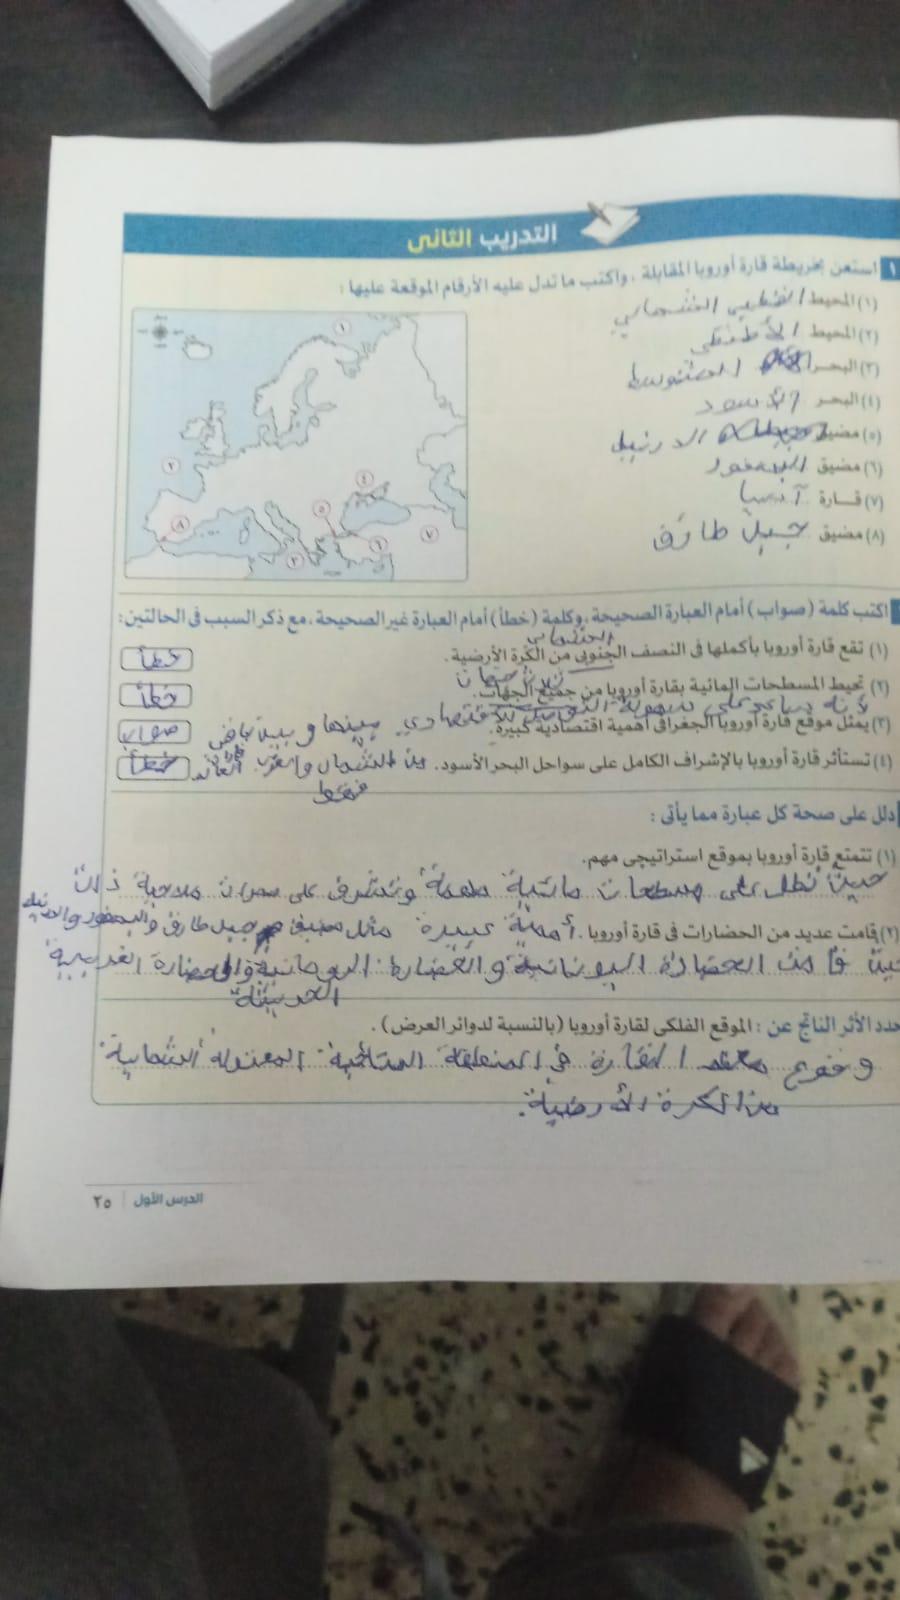 التدريب الثاني
١ استعن بخريطة قارة أوروبا المقابلة، واكتب ما تدل عليه الأرقام الموقعة عليها:
(١) المحيط القطبي الشمالي
(٢) المحيط الأطلنطي
(٣) البحر المتوسط
(٤) البحر الأسود
(٥) مضيق الدردنيل
(٦) مضيق البسفور
(٧) قارة آسيا
(٨) مضيق جبل طارق
١
٢
٣
٤
٥
٦
٧
٨
اكتب كلمة (صواب) أمام العبارة الصحيحة، وكلمة (خطأ) أمام العبارة غير الصحيحة، مع ذكر السبب فى الحالتين:
الشمالي
(١) تقع قارة أوروبا بأكملها فى النصف الجنوبى من الكرة الأرضية. خطأ
ثلاث جهات
(٢) تحيط المسطحات المائية بقارة أوروبا من جميع الجهات. خطأ
لأنه ساعد على سهولة التواصل الاقتصادي بينها وبين باقي
(٣) يمثل موقع قارة أوروبا الجغرافى أهمية اقتصادية كبيرة. صواب
قارات العالم
(٤) تستأثر قارة أوروبا بالإشراف الكامل على سواحل البحر الأسود. من الشمال والغرب خطأ
فقط
دلل على صحة كل عبارة مما يأتى:
(١) تتمتع قارة أوروبا بموقع استراتيجى مهم.
حيث تطل على مسطحات مائية مهمة وتشرف على ممرات ملاحية ذات
(٢) قامت عديد من الحضارات فى قارة أوروبا. أهمية كبيرة مثل مضيق جبل طارق والبسفور والدردنيل
حيث قامت الحضارة اليونانية والحضارة الرومانية والحضارة الغربية
الحديثة
حدد الأثر الناتج عن: الموقع الفلكى لقارة أوروبا (بالنسبة لدوائر العرض).
وقوع معظم القارة في المنطقة المناخية المعتدلة الشمالية
من الكرة الأرضية.
الدرس الأول ٢٥